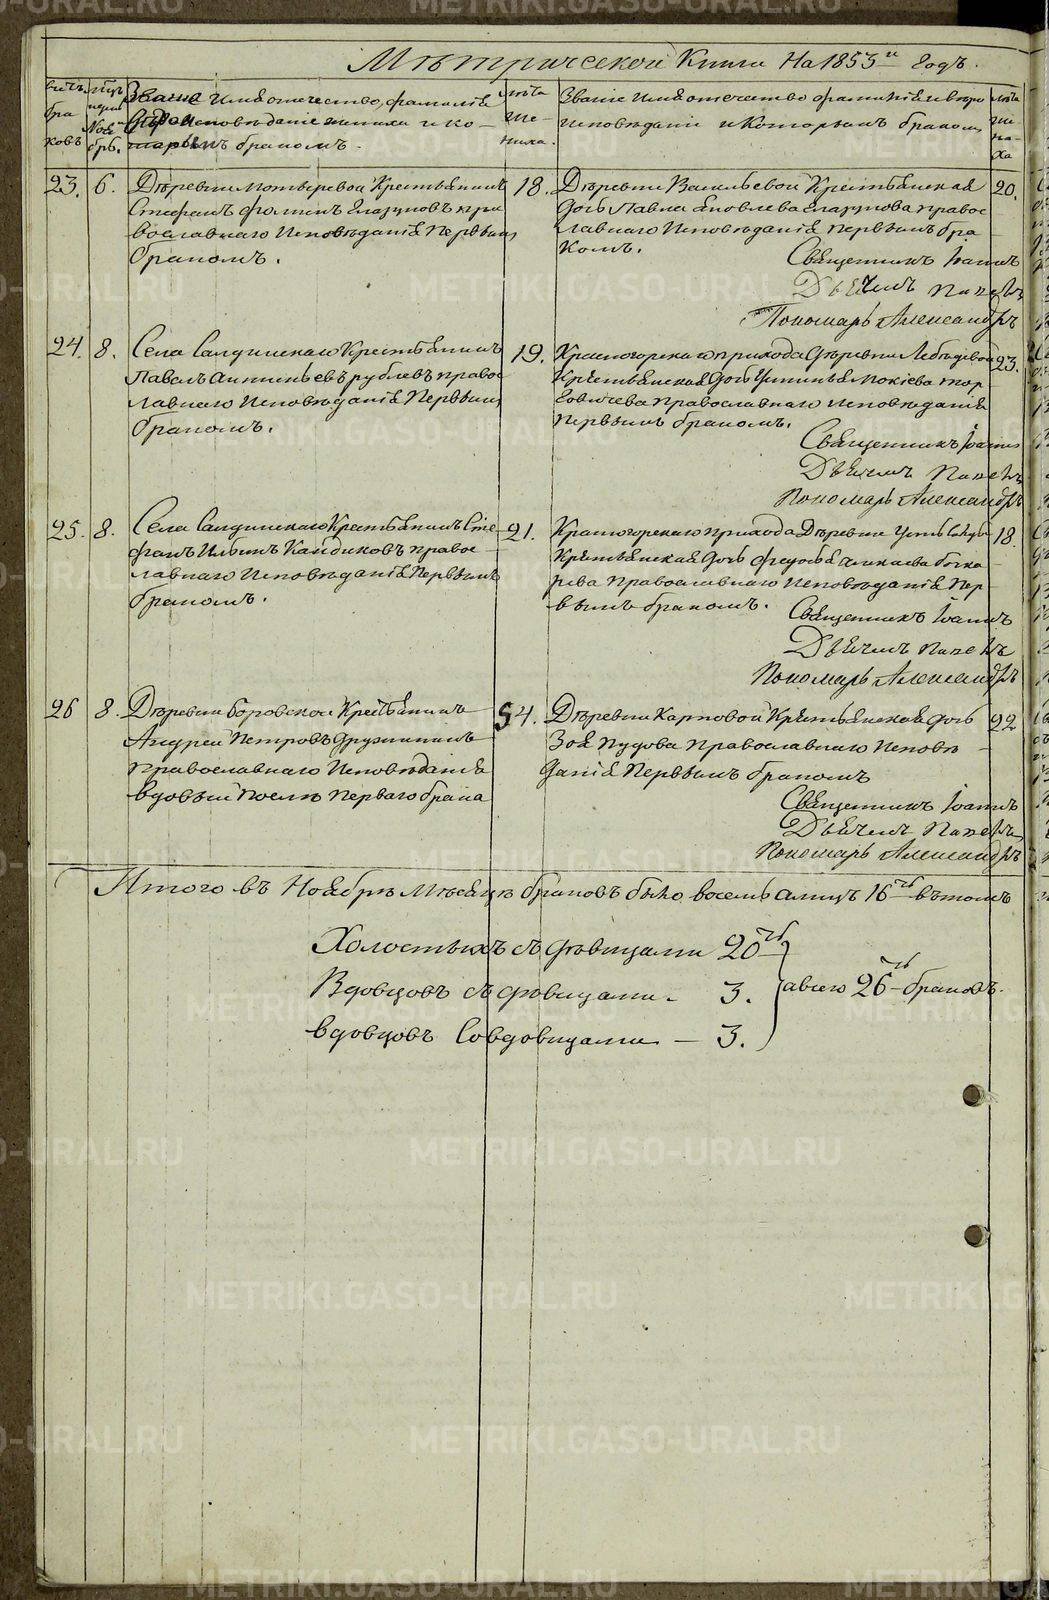 Метрической Книги На 1853й Годъ.
счетъ браковъ
мцъ и дни Ноябрь.
Званіе имя отечество, фамилія
вероисповеданіе жениха и ко-
торымъ бракомъ.
лѣта жениха.
Званіе имя отечество фамилія и веро
исповѣданіе и которымъ бракомъ
23. 6. Деревни Мотыревой Крестьянинъ
Стефанъ Фоминъ Глазуновъ пра
вославнаго Исповѣданія Первымъ
бракомъ.
18.
Деревни Васильевой Крестьянская
дочь Павла Яковлева Глазунова право
славнаго Исповѣданія первымъ бра
комъ.
20.
Священникъ Іоаннъ
Дьячекъ Павелъ
Пономарь Александръ
24. 8. Села Салдинскаго Крестьянинъ
Павелъ Антипьевъ рублевъ право
славнаго Исповѣданія Первымъ
бракомъ.
19.
Красногорскаго прихода деревни Лебедевой
Крестьянская дочь Устинья Мокіева
Православнаго Исповѣданія
Первымъ бракомъ.
23.
Священникъ Іоаннъ
Дьячекъ Павелъ
Пономарь Александръ
25. 8. Села Салдинскаго Крестьянинъ Сте
фанъ Ильинъ Кайдиковъ право
славнаго Исповѣданія Первымъ
бракомъ.
21.
Красногорскаго прихода Деревни
Крестьянская дочь Федосья
Православнаго Исповѣданія Пер
вымъ бракомъ.
18.
Священникъ Іоаннъ
Дьячекъ Павелъ
Пономарь Александръ
26 8. Деревни боровской Крестьянинъ
Андрей Петровъ Дружининъ
Православнаго Исповѣданія
вдовый после перваго брака
54.
Деревни Карповой Крестьянская дочь
Зоя Пудова Православнаго Исповѣ
данія Первымъ бракомъ
22
Священникъ Іоаннъ
Дьячекъ Павелъ
Пономарь Александръ
Итого въ Ноябрѣ Мѣсяцѣ браковъ было восемь а лицъ 16ть въ томъ
Холостыхъ съ дѣвицами 20ть
Вдовцовъ съ дѣвицами - 3.
вдовцовъ Совдовицами - 3.
а всего 26ть браковъ.
METRIKI.GASO-URAL.RU